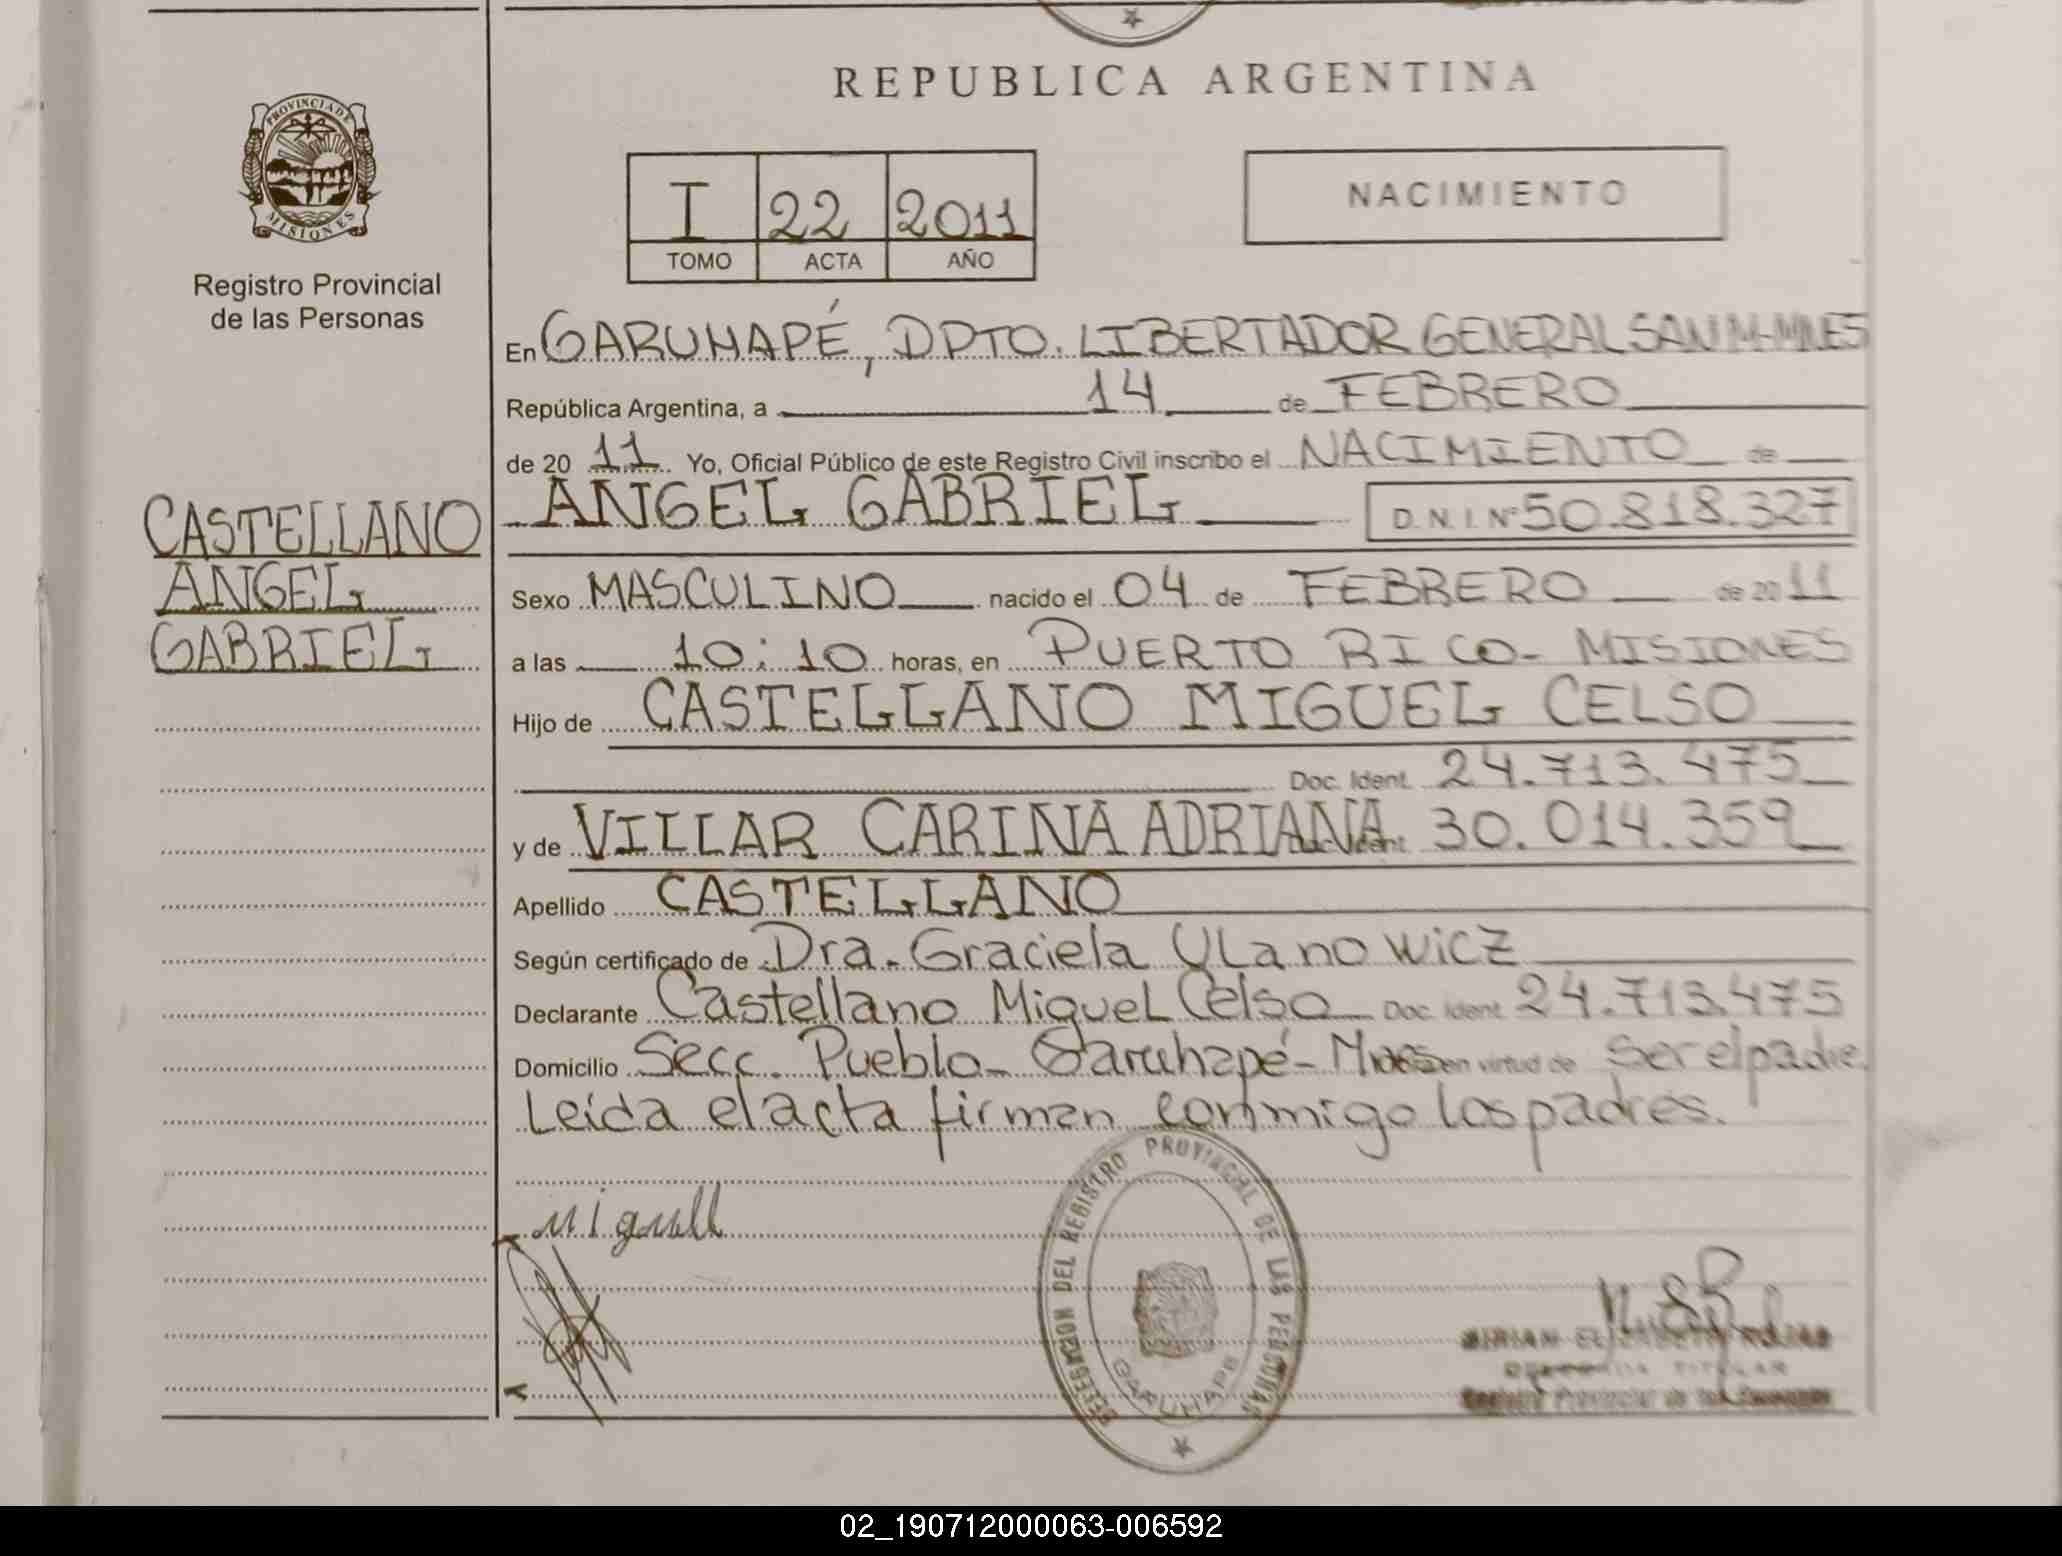 REPUBLICA ARGENTINA
PROVINCIA DE MISIONES
Registro Provincial
de las Personas
I 22 2011
TOMO ACTA AÑO
NACIMIENTO
En GARUHAPÉ, DPTO. LIBERTADOR GENERAL SAN M-MNES
República Argentina, a 14 de FEBRERO
de 20 11 Yo, Oficial Público de este Registro Civil inscribo el NACIMIENTO de
ANGEL GABRIEL D.N.I. Nº 50.818.327
CASTELLANO
ANGEL
GABRIEL
Sexo MASCULINO nacido el 04 de FEBRERO de 20 11
a las 10:10 horas, en PUERTO RICO - MISIONES
Hijo de CASTELLANO MIGUEL CELSO
Doc. Ident. 24.713.475
y de VILLAR CARINA ADRIANA 30.014.359
Apellido CASTELLANO
Según certificado de Dra. Graciela Ulanowicz
Declarante Castellano Miguel Celso Doc. Ident. 24.713.475
Domicilio Secc. Pueblo - Garuhapé - Mnes en virtud de ser el padre
Leída el acta firman conmigo los padres.
Miguell
DELEGACION DEL REGISTRO PROVINCIAL DE LAS PERSONAS
GARUHAPE
MIRIAN ELIZABETH ROJAS
DELEGADA TITULAR
Registro Provincial de las Personas
02_190712000063-006592